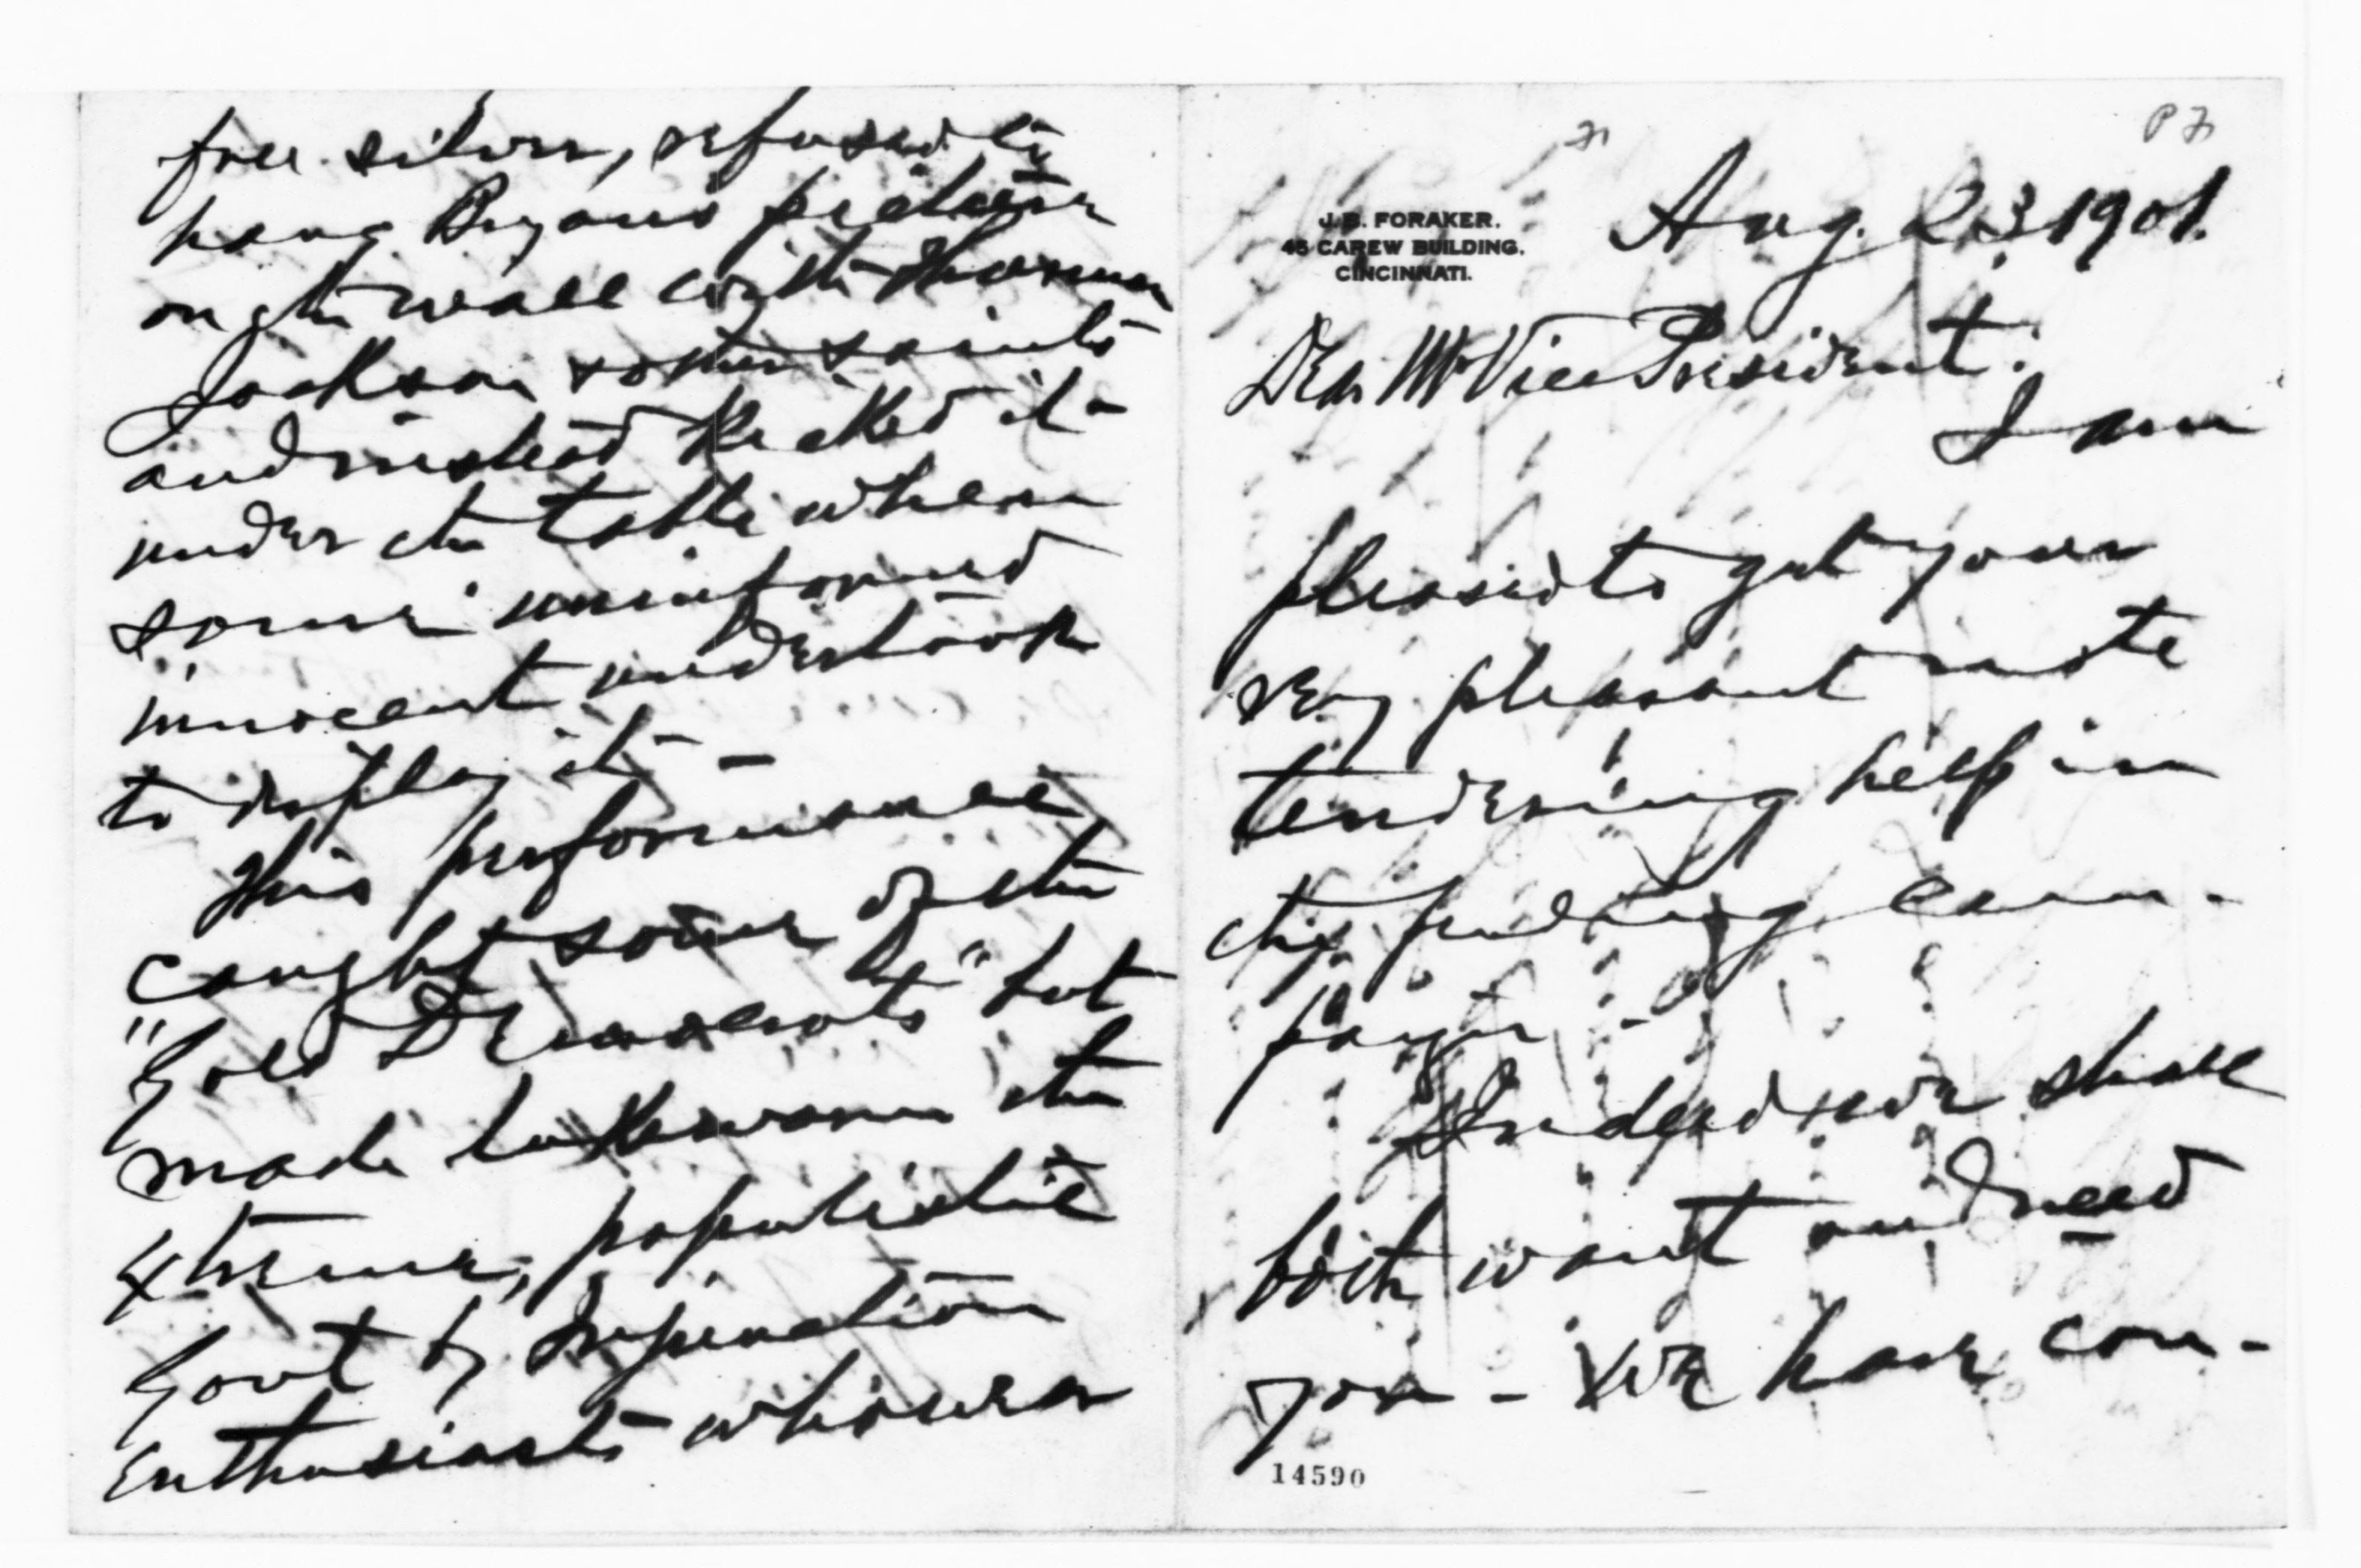 P 7
J. B. FORAKER.
46 CAREW BUILDING.
CINCINNATI.
Aug. 23 1901.
Dear Mr Vice President:
I am
pleased to get your
very pleasant note
tendering help in
the pending cam-
paign -
Indeed we shall
both want and need
you - We have con-
14590
free silver, refused to
hang Bryan's picture
on the wall with
Jackson & other saints
and instead kicked it
under the table when
some uninformed
innocent undertook
to display it -
This performance
caught some of the
"Gold Democrats" but
made lukewarm the
extreme, populistic
Govt by Inspiration
Enthusiasts who were